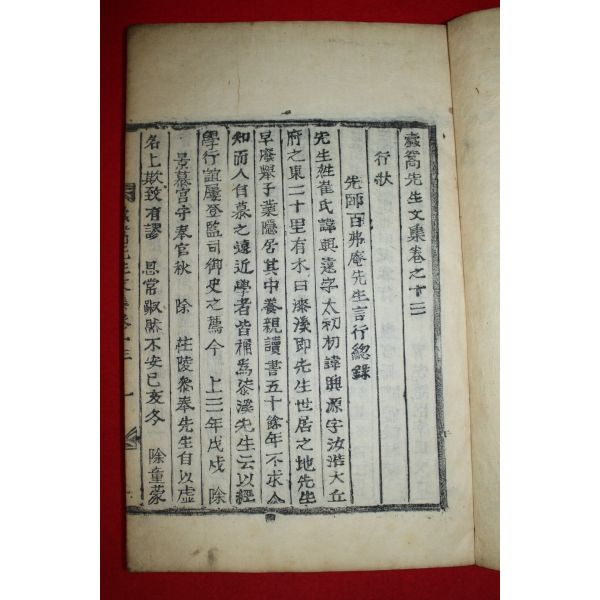 蠹窩先生文集卷之十三
行狀
先師百弗庵先生言行總錄
先生姓崔氏諱興遠字太初初諱興源字汝浩大丘
府之東二十里有水曰漆溪即先生世居之地先生
早廢擧子業隱居其中養親讀書五十餘年不求人
知而人自慕之遠近學者皆稱爲漆溪先生云以經
學行誼屢登監司御史之薦今 上二年戊戌 除
景慕宮守奉官秋 除 莊陵參奉先生自以虛
名上欺致有謬 恩常踧然不安己亥冬 除童蒙